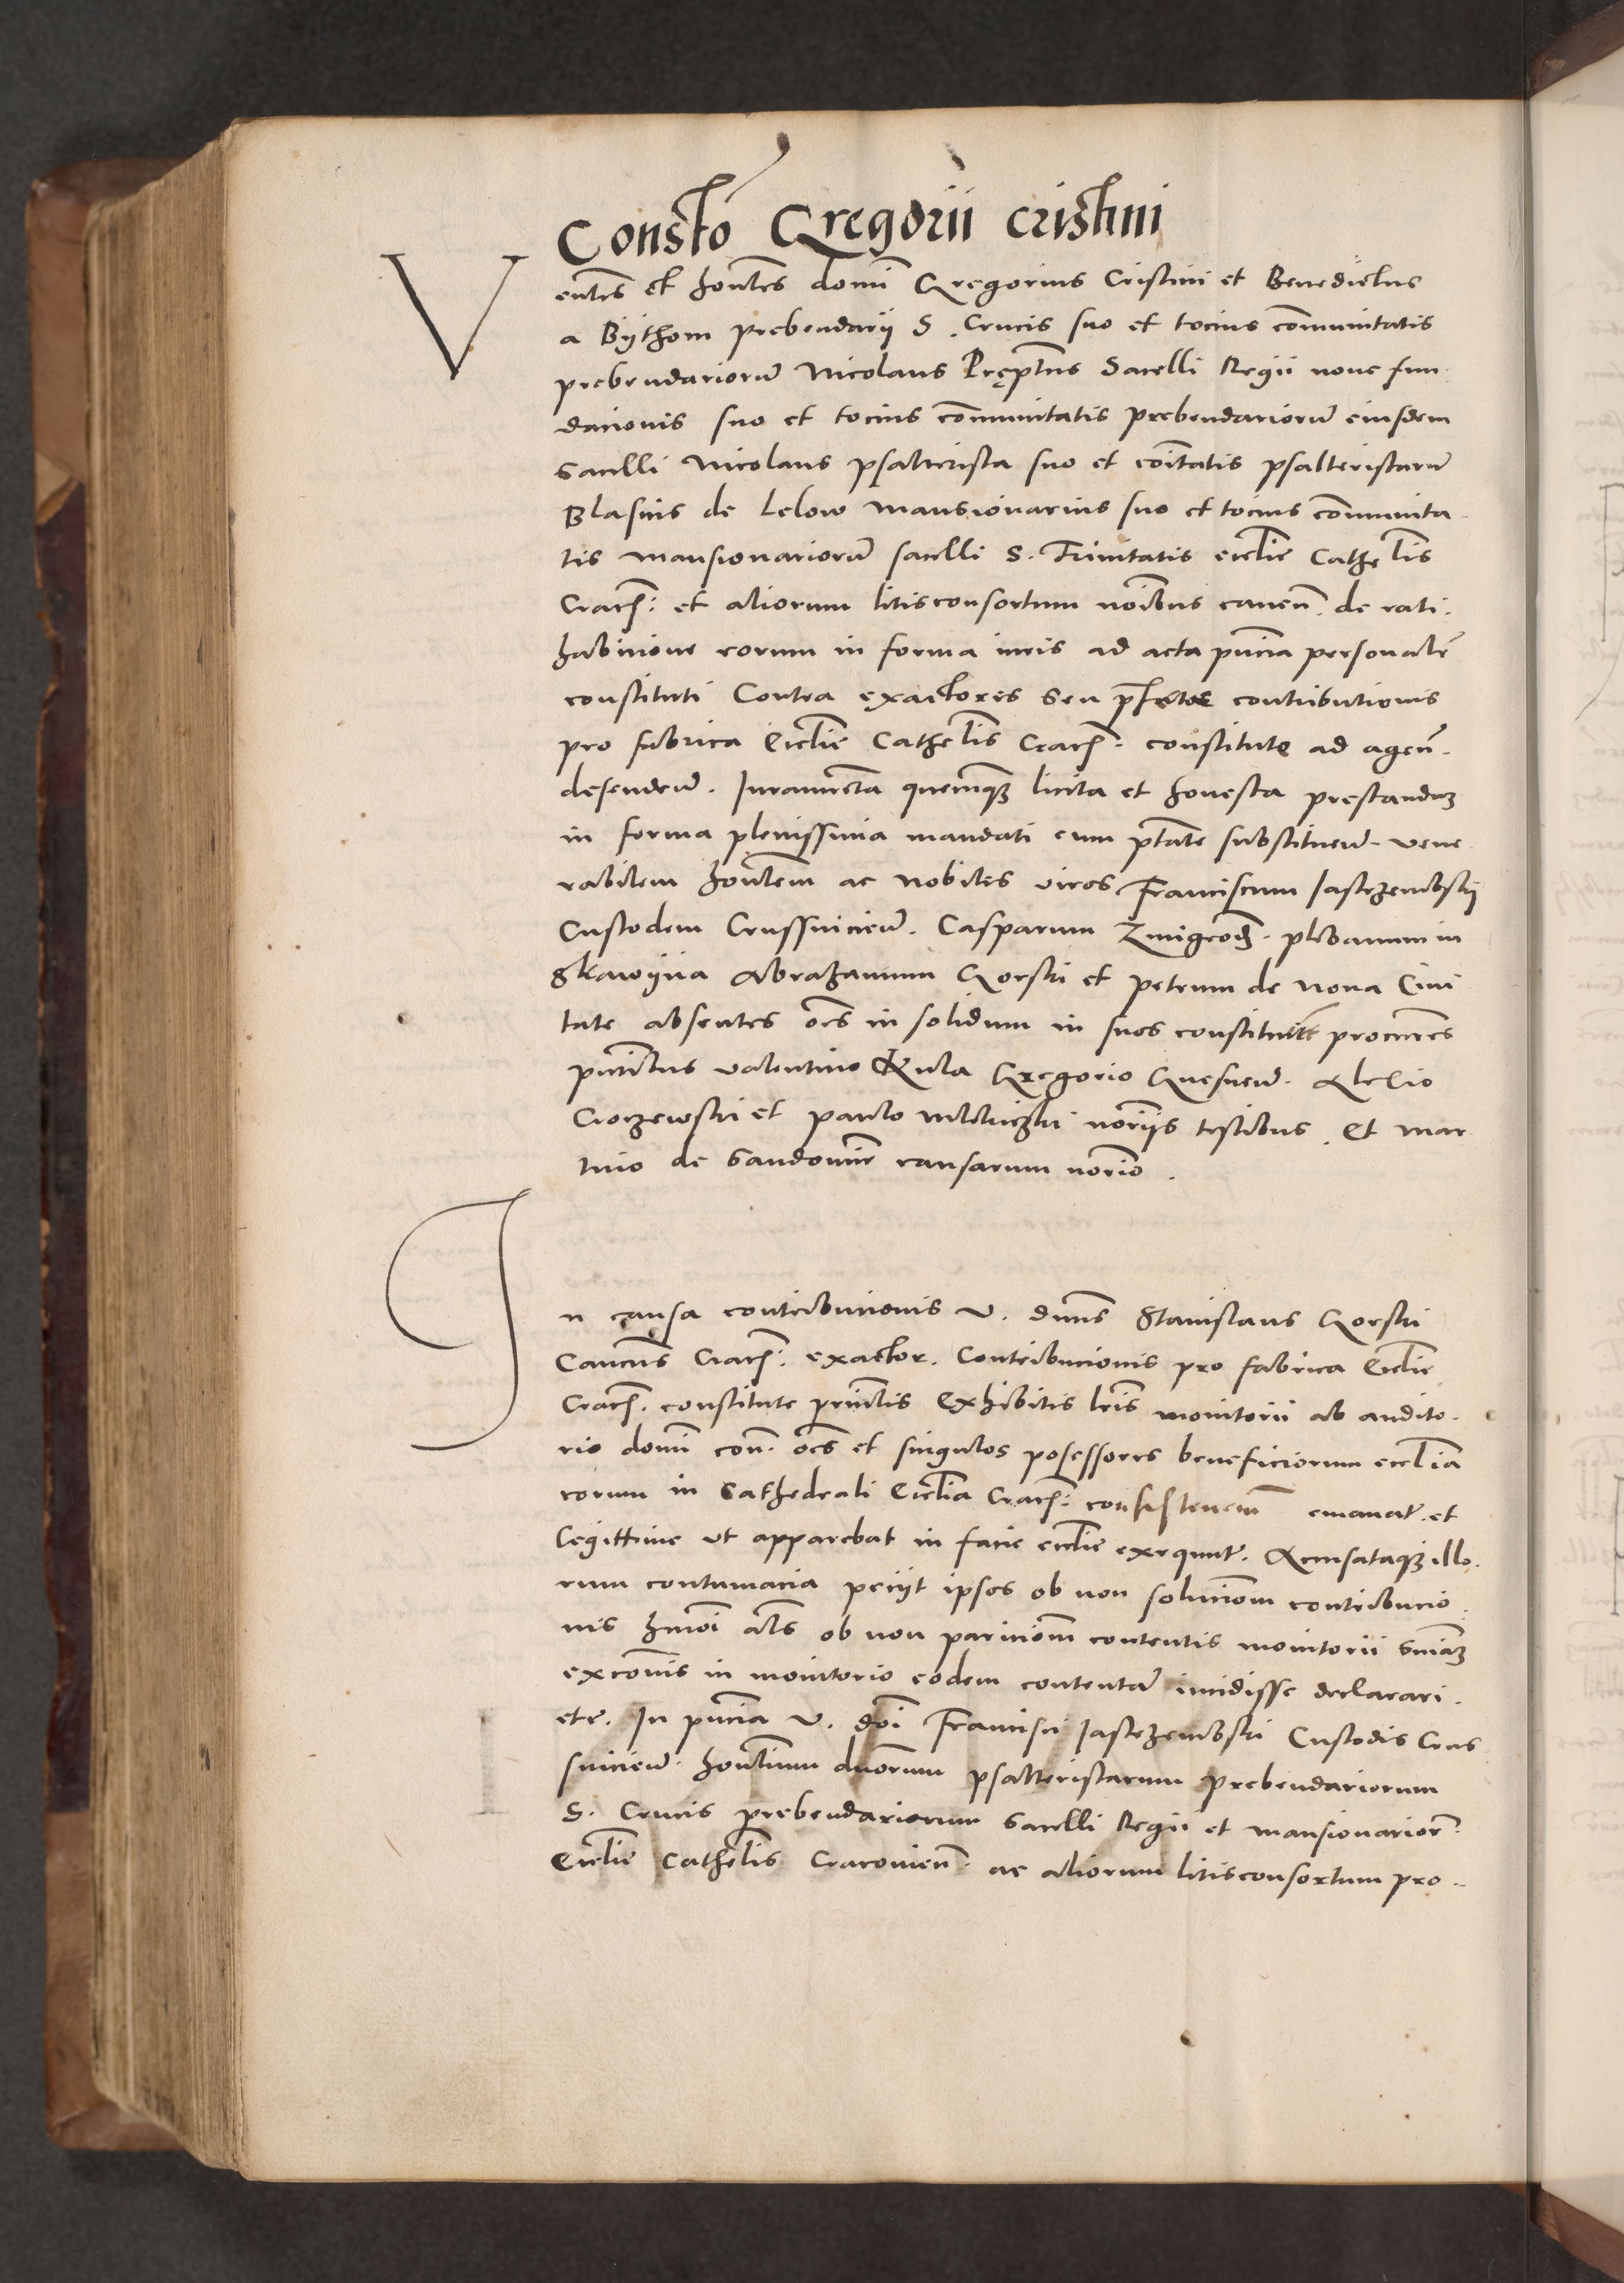 Constō Gregorii cristini
Ventes et hontes domī Gregorius Cristini et Benedictus
a Bythom prebendarii S. Crucis suo et tocius cōmunitatis
prebendariorū Nicolaus Pręptus Sacelli Regii nove fun
dacionis suo et tocius cōmunitatis prebendariorū eiusdem
Sacelli Nicolaus psalterista suo et cōitatis psalteristarū
Blasius de Lelow mansionarius suo et tocius cōmunita
tis mansionariorū sacelli S. Trinitatis ecclie Cathelis
Crach: et aliorum litisconsortum noibus caven. de rati
habicione eorum in forma iuris ad acta pncia personalr
constituti Contra exactores seu contributionis
pro fabrica Ecclie Cathelis Crach: constitute ad agen.
defendeñ. Iuramenta quecunqꝫ licita et honesta prestandum
in forma plenissima mandati cum ptate substitueñ. vene
rabilem hontem ac nobiles viros Franciscum Iastrzembskÿ
Custodem Crussvicieñ. Casparum Zmigrod. plebanum in
Skawÿna Abrahamum Gorski et petrum de Nova Civi
tate absentes oēs in solidum in suos constitu procures
pntibus valentino Kula Gregorio
Croczewski et paulo noriis testibus. Et mar
tino de Sandomir causarum norio.
In causa contribucionis V. dnus Stanislaus Gorski
Cancus Crach: exactor. Contribucionis pro fabrica Ecclie
Crach. constitute Exhibitis lris monitorii ab audito
rio domī coīs. oēs et singulos posessores beneficiorum ecclia
corum in Cathedrali Ecclia Crach: consistenem emanat. et
Legittime ut apparebat in facie ecclie exequut. Accusataqꝫ illo
rum contumacia peciit ipsos ob non solucionem contribucio
nis hmoi als ob non paricionem contentis monitorii sniam
excois in monitorio eodem contentam incidisse declarari.
etc. In pncia V. doi Francisci Iastrzembski Custodis Crus
svicień. hontium dnorum psalteristarum prebendariorum
S. Crucis prebendariorum Sacelli Regii et mansionarior.
Ecclie Cathelis Cracovień. ac aliorum litisconsortum pro-